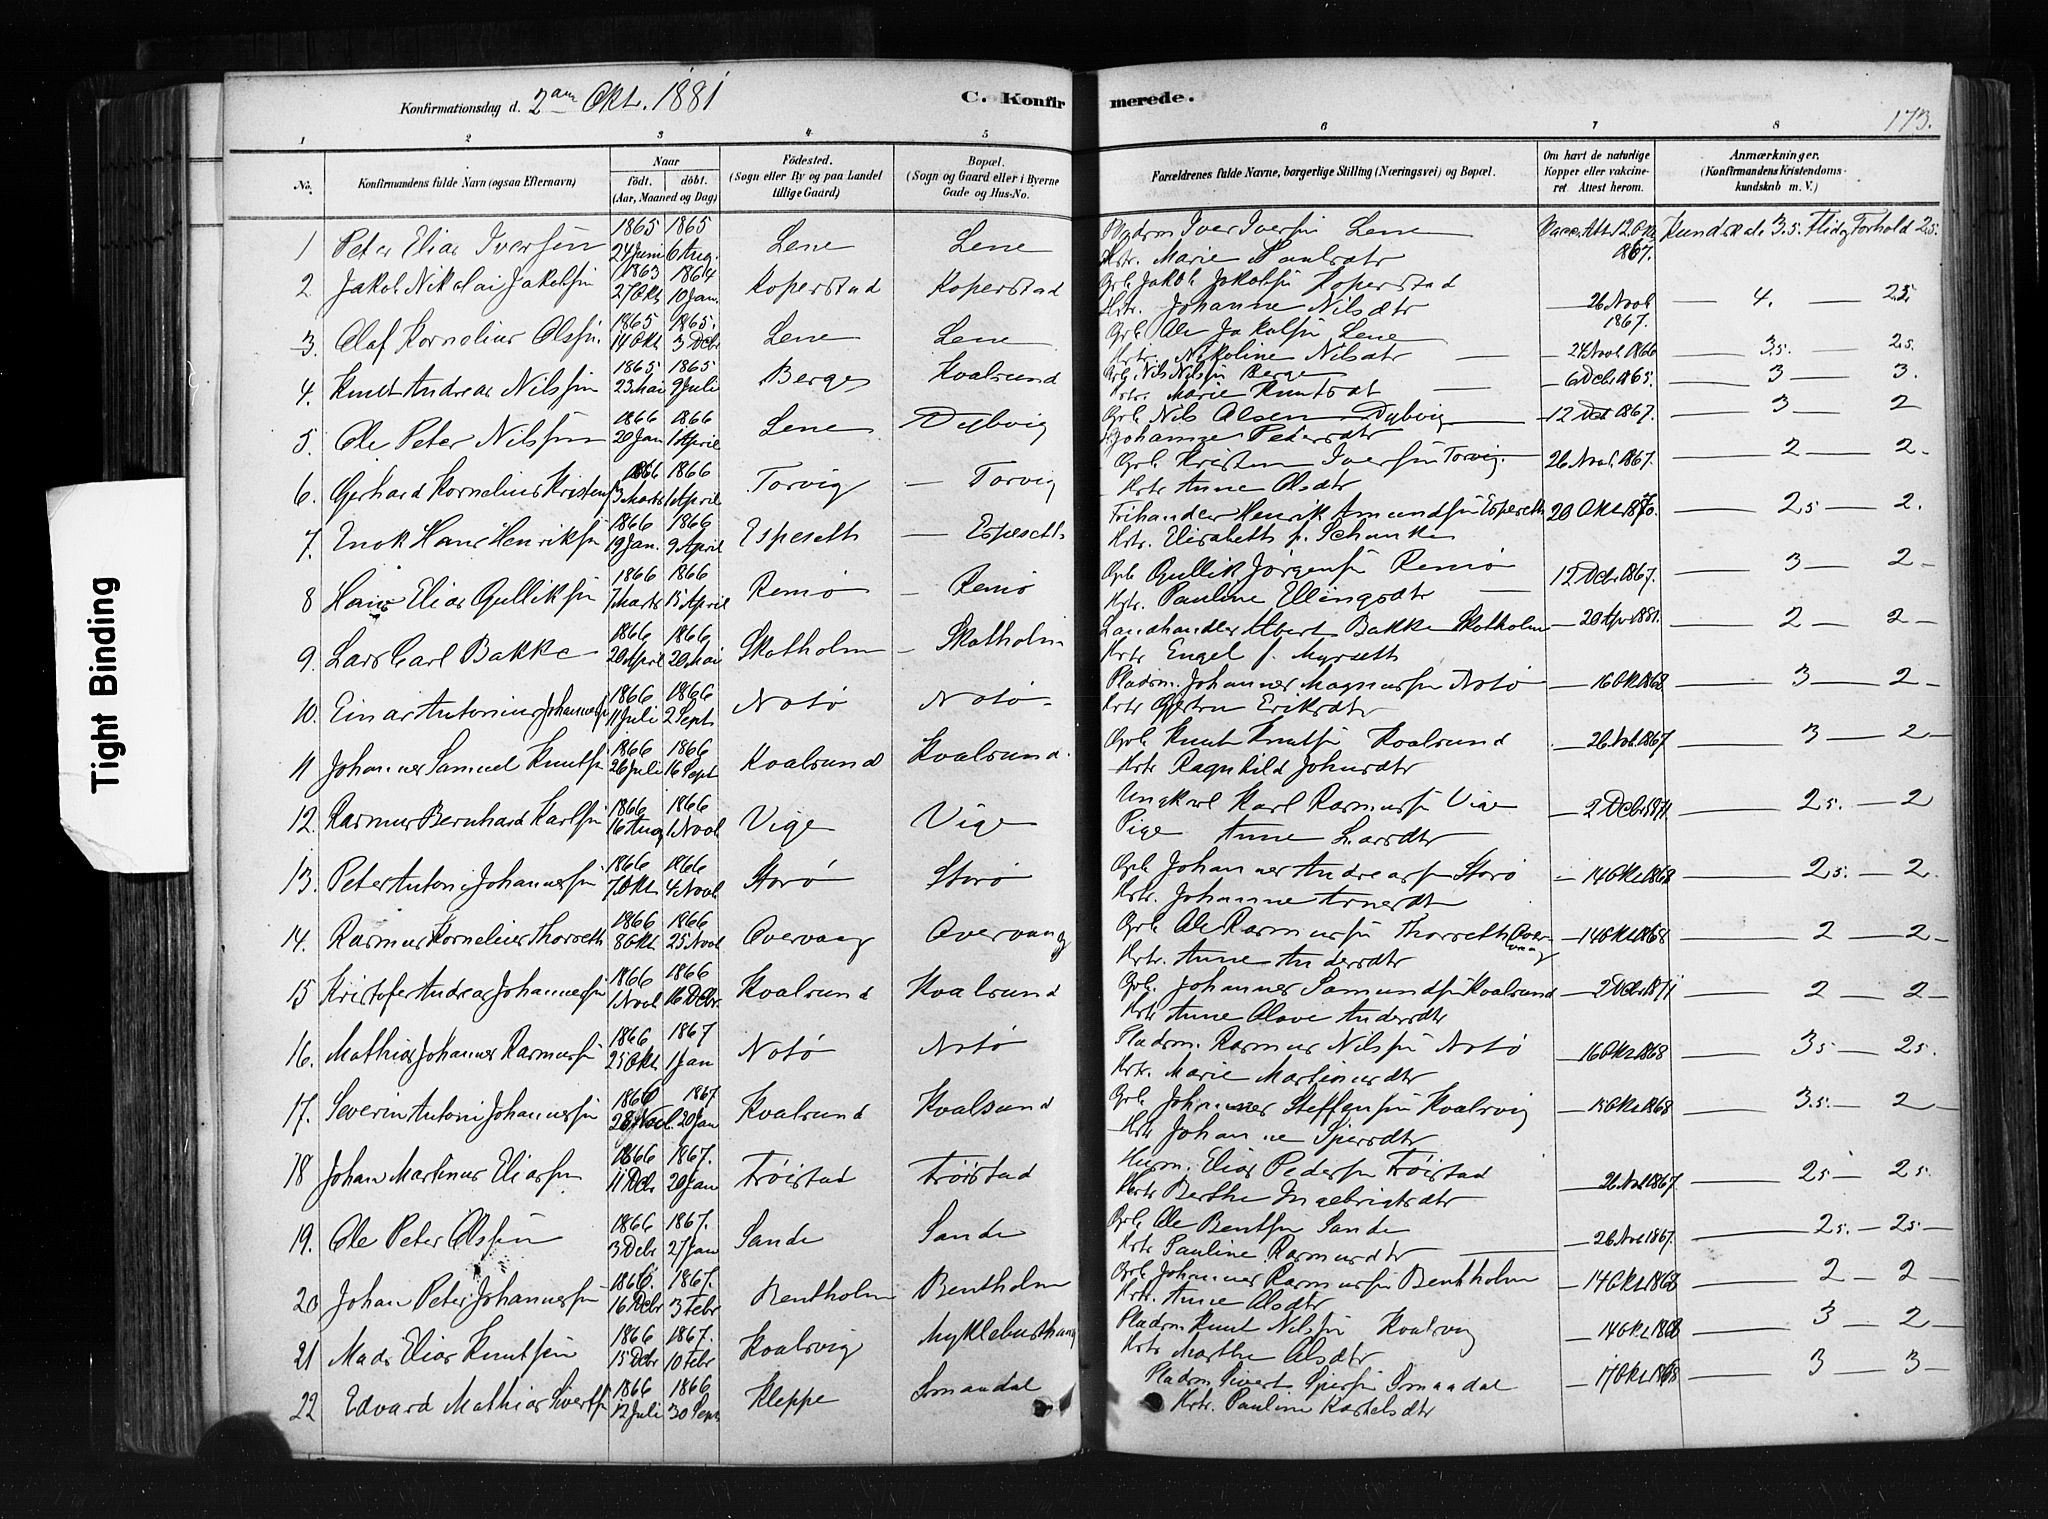 Konfirmationsdag d. 2den Okt. 1881 C. Konfirmerede. 173.
1 2 3 4 5 6 7 8
No. Konfirmandens fulde Navn (ogsaa Efternavn) Naar født. døbt. (Aar, Maaned og Dag) Fødested. (Sogn eller By og paa Landet tillige Gaard) Bopæl. (Sogn og Gaard eller i Byerne Gade og Hus-No. Forældrenes fulde Navne, borgerlige Stilling (Næringsvei) og Bopæl. Om havt de naturlige Kopper eller vaccineret. Attest herom. Anmærkninger. (Konfirmandens Kristendomskundskab m. V.)
1 Peter Elias Iversøn 1865 24 Juni 1865 6 Aug. Lene Lene Iver Iversøn Lene
Hstr. Marie Paulsdtr 1867. Kundskab 3.5. Flid og Forhold 2.5.
2 Jakob Nikolai Jakobsøn 1863 27 Okt 1864 10 Jan. Koperstad Koperstad Grb. Jakob Jakobsøn Koperstad
Hstr. Johanne Nilsdtr 26 Novb 1867. 4. 2.5.
3. Olaf Kornelius Olsøn. 1865 14 Okt 1865. 3 Dcbr Lene Lene Grb. Ole Jakobsøn Lene
Hstr. Nikoline Nilsdtr 24 Novb 1866 3.5. 2.5.
4. Knut Andreas Nilssøn 1865 23 Mai 1865 9 Juli Berge Kvalsund Grb. Nils Nilssøn Berge
Hstr. Marie Knutsdt 6 Dcbr 1865. 3 3.
5. Ole Peter Nilssøn 1866 20 Jan 1866 1 April Lene Dybvig Grb. Nils Olsen Dybvig
Johanne Pedersdtr 12 Dcb 1867. 3 2
6. Gerhard Kornelius Kristensøn 1866 13 Marts 1866 1 April Torvig Torvig Grb. Kristen Iversøn Torvig.
Hstr Anne Olsdtr 26 Novb. 1867. 2 2.
7. Enok Hans Henriksøn 1866 19 Jan. 1866 9 April Espeseth Espeseth Frihandler Henrik Amundsøn Espeseth
Hstr. Elisabeth f. Schanke 20 Okt 1876. 2.5 2.
8 Hans Elias Gulliksøn 1866 7 Marts 1866 15 April Remø Remø Grb Gullik Jørgensøn Remø
Hstr. Pauline Ellingsdtr 12 Dcbr 1867. 3 2
9. Lars Carl Bakke 1866 20 April 1866 20 Mai Skotholm Skotholm Landhandler Albert Bakke Skotholm
Hstr Engel f. Myrseth 20 Apr 1881. 2 2
10. Einar Antonius Johannessøn 1866 11 Juli 1866 2 Sept Notø Notø Pladsm. Johannes Magnussøn Notø
Hstr Gjertru Eriksdtr 16 Okt 1868 3 2
11 Johannes Samuel Knutsøn 1866 26 Juli 1866 16 Sept Kvalsund Kvalsund. Grb. Knut Knutsøn Kvalsund
Hstr Ragnhild Johnsdtr 26 Nvb. 1867 3 2
12. Rasmus Bernhard Karlsøn 1866 16 Aug 1866 1 Novb Vige Vige Ungkarl Karl Rasmussøn Vige
Pige Anne Larsdtr 2 Dcbr 1871. 2.5. 2
13. Peter Antoni Johannessøn 1866 7 Okt 1866 4 Novb Storø Storø Grb. Johannes Andreassøn Storø
Hstr. Johanne Arnesdtr 14 Okt 1868 2.5. 2.
14. Rasmus Kornelius Thorseth 1866 8 Okt 1866 25 Novb Overvaag Overvaag Grb. Ole Rasmussøn Thorseth (Overvaag
Hstr. Anne Andersdtr 14 Okt 1868 2 2
15 Kristofer Andreas Johannessøn 1866 1 Novb 1866 16 Dcbr. Kvalsund Kvalsund Grb. Johannes Samundsøn Kvalsund
Hstr Anne Olave Andersdtr 2 Dcbr 1871 2 2
16. Mathias Johannes Rasmussøn 1866 25 Okt 1867 1 Jan Notø Notø Pladsm. Rasmus Nilssøn Notø
Hstr. Marie Martinusdtr 16 Okt 1868 3.5 2.5.
17. Severin Antoni Johannessøn 1866 28 Novb. 1867 20 Jan Kvalsund Kvalsund Grb. Johannes Steffensøn Kvalsvig
Hstr Johanne Sjursdtr 15 Okt 1868 3.5. 2
18 Johan Martinus Eliassøn 1866 11 Dcbr 1867. 20 Jan Frøistad Frøistad Husm. Elias Pedersøn Frøistad
Hstr Berthe Ingebrigtsdtr 26 Nvb 1867. 2.5 2.5.
19. Ole Peter Olssøn 1866 3 Dcbr 1867. 27 Jan Sande Sande Grb. Ole Bentsøn Sande
Hstr Pauline Rasmusdtr 26 Nov 1867. 2.5. 2.5.
20 Johan Peter Johannessøn 1866 16 Dcbr 1867. 3 Febr Bentholm Bentholm Grb. Johannes Rasmussøn Bentholm
Hstr. Anne Olsdtr 14 Okt 1868 2 2
21 Mads Elias Knutsøn 1866 15 Dcbr 1867. 10 Febr Kvalsvig Myklebusthaug Pladsm Knut Nilssøn Kvalsvig
Hstr Marthe Olsdtr 14 Okt 1868 3 2
22 Edvard Mathias Sivertsøn 1866 12 Juli 1866 30 Sept Kleppe Smaadal Pladsm Sivert Sjursøn Smaadal
Hstr. Pauline Karlsdtr 17 Okt 1868 3 3
Tight Binding